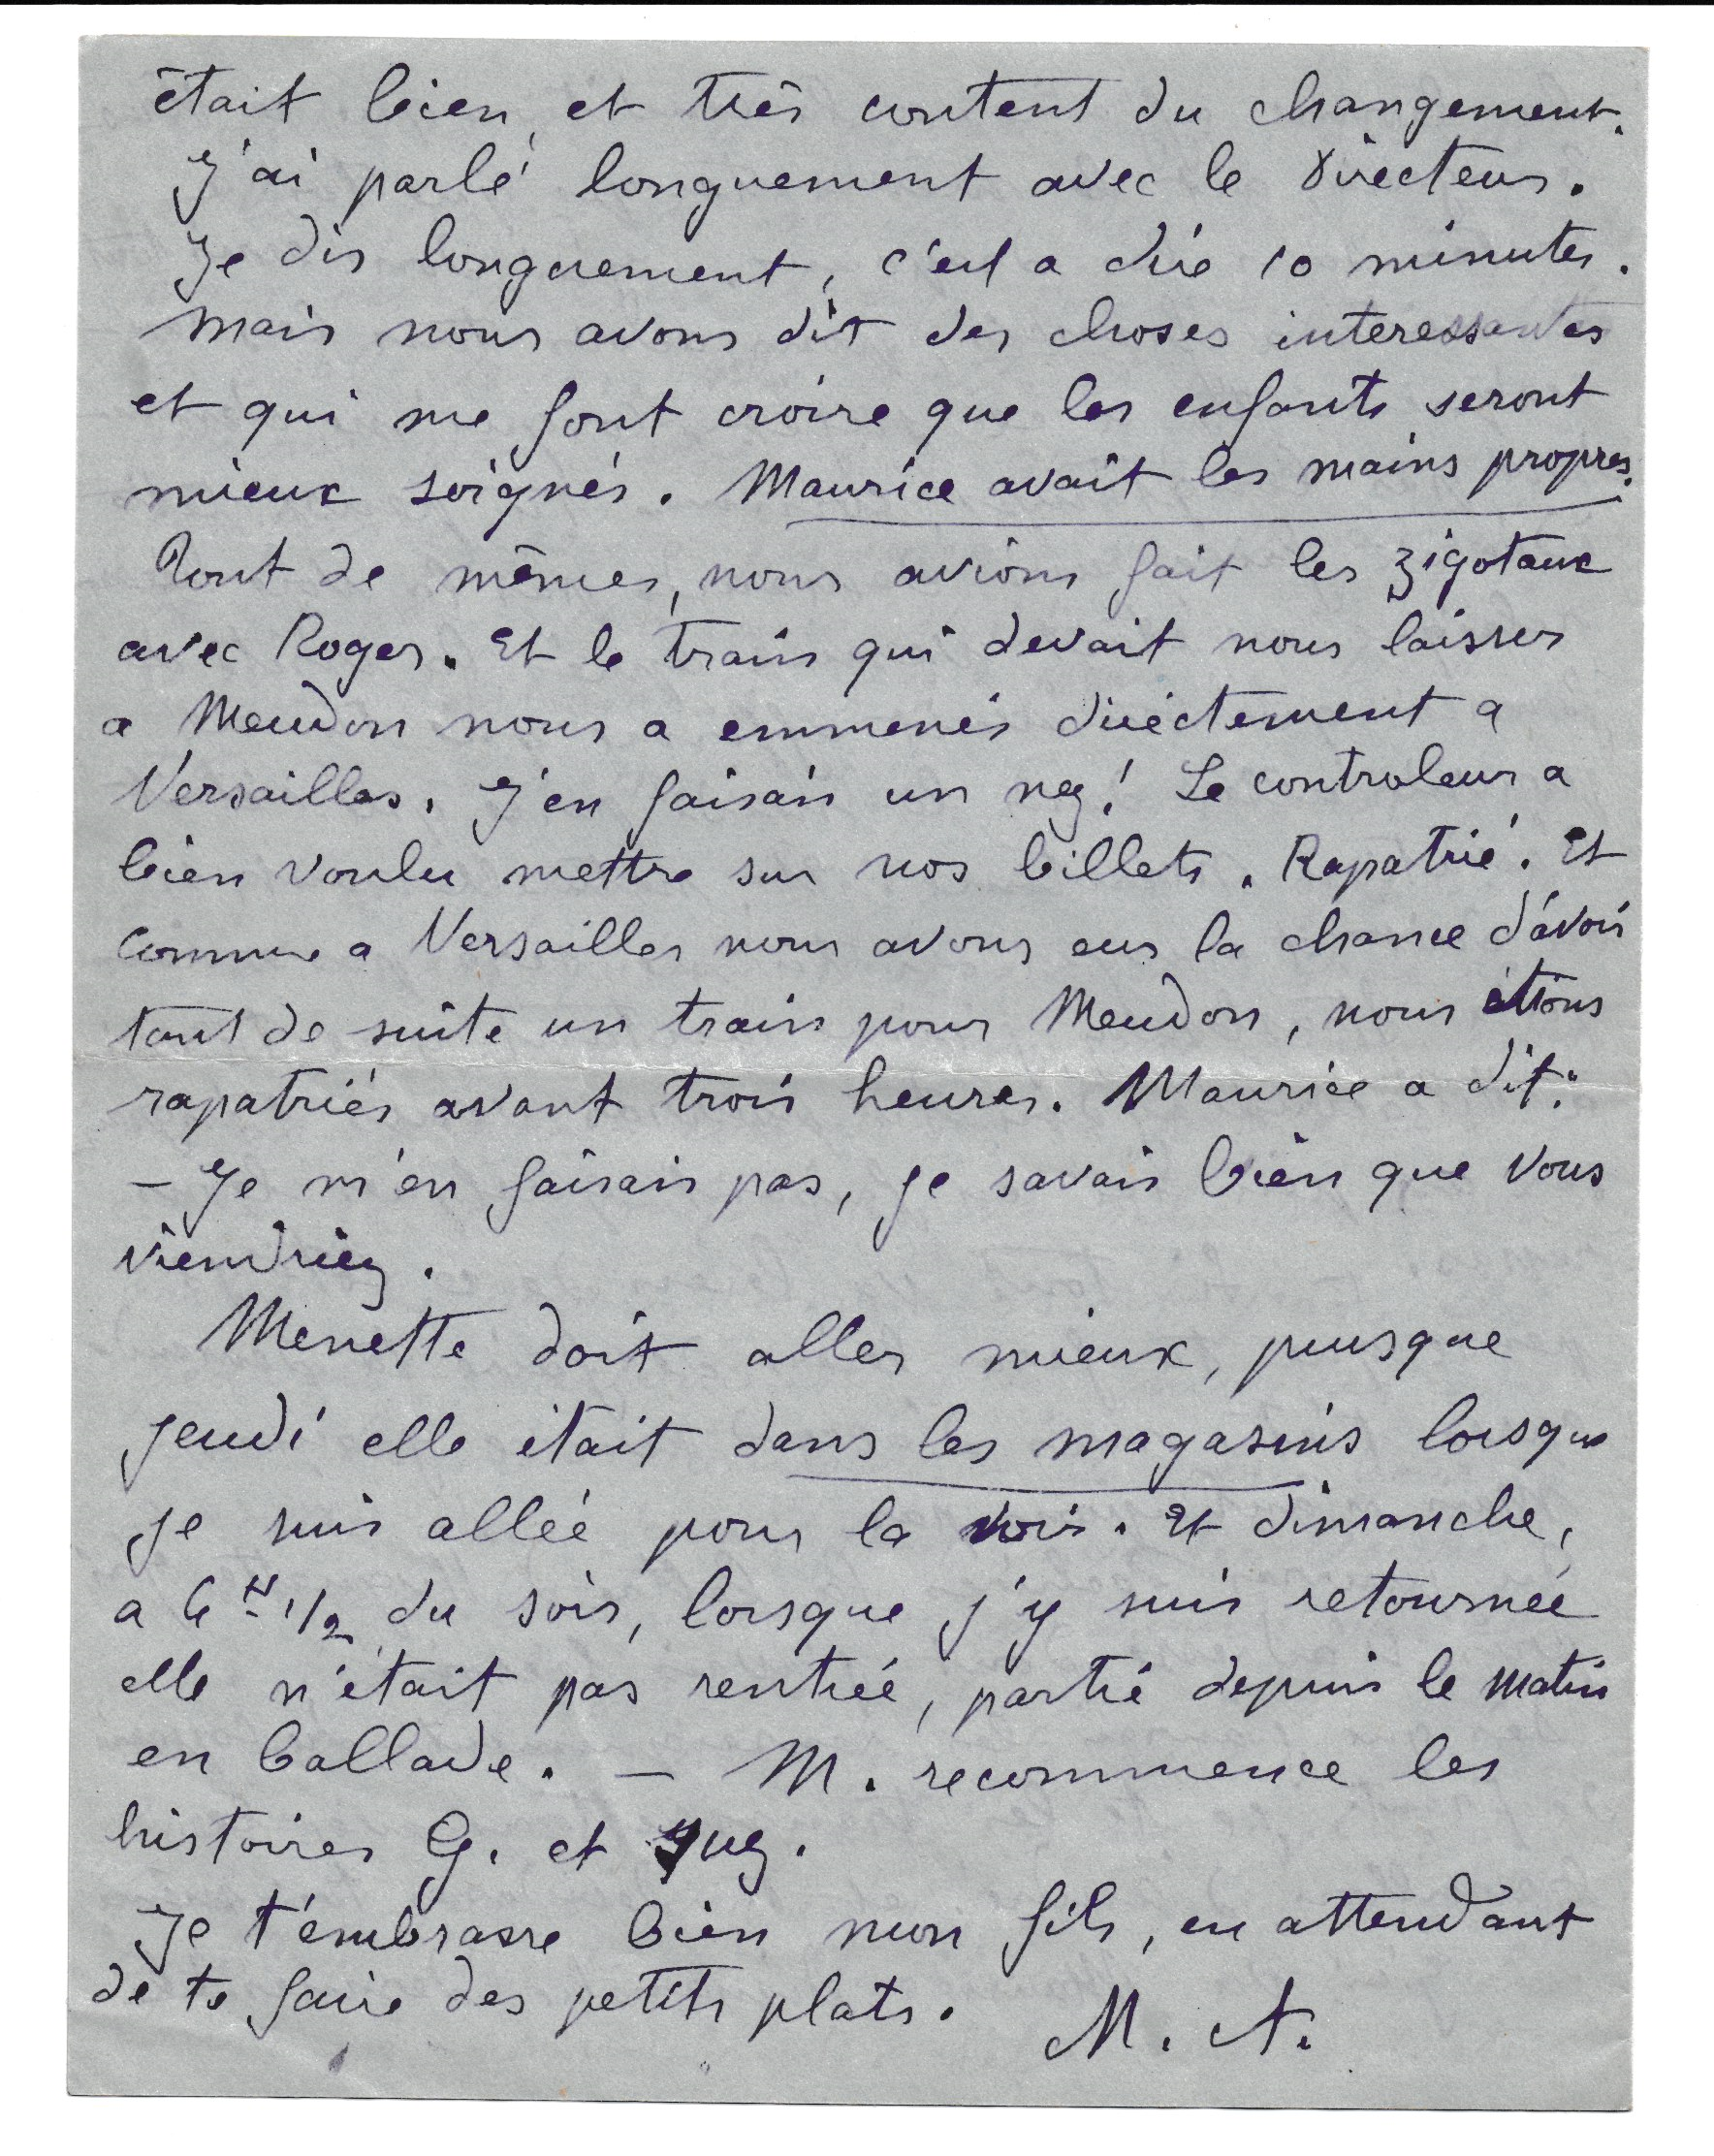 était bien, et très content du changement.
J'ai parlé longuement avec le Directeur.
Je dis longuement, c'est a dire 10 minutes.
Mais nous avons dit des choses interessantes
et qui me font croire que les enfants seront
mieux soignés. Maurice avait les mains propres.
Tout de mêmes, nous avions fait les zigotaux
avec Roger. Et le train qui devait nous laisser
a Meudon nous a emmenés directement a
Versailles. J'en faisais un nez! Le controleur a
bien voulu mettre sur nos billets. Rapatrié. Et
comme a Versailles nous avons eus la chance d'avoir
tout de suite un train pour Meudon, nous étions
rapatriés avant trois heures. Maurice a dit:
— Je m'en faisais pas, je savais bien que vous
viendriez.
Menette doit aller mieux, pusque
jeudi elle était dans les magasins lorsque
je suis allée pour la voir. Et dimanche,
a 6 H 1/2 du soir, lorsque j'y suis retournée
elle n'était pas rentrée, partie depuis le matin
en ballade. — M. recommence les
histoires G. et
Je t'embrasse bien mon fils, en attendant
de te faire des petits plats. M. A.